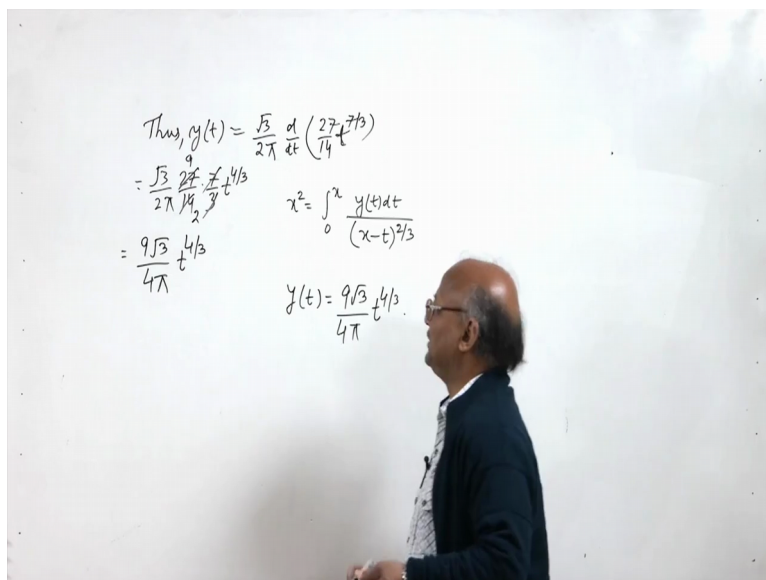 Thus, y(t) = √3/2π d/dt (27/14 t^7/3)
= √3/2π 27/14 · 7/3 t^4/3
9
2
= 9√3/4π t^4/3
x² = ∫₀ˣ y(t)dt/(x-t)^2/3
y(t) = 9√3/4π t^4/3.